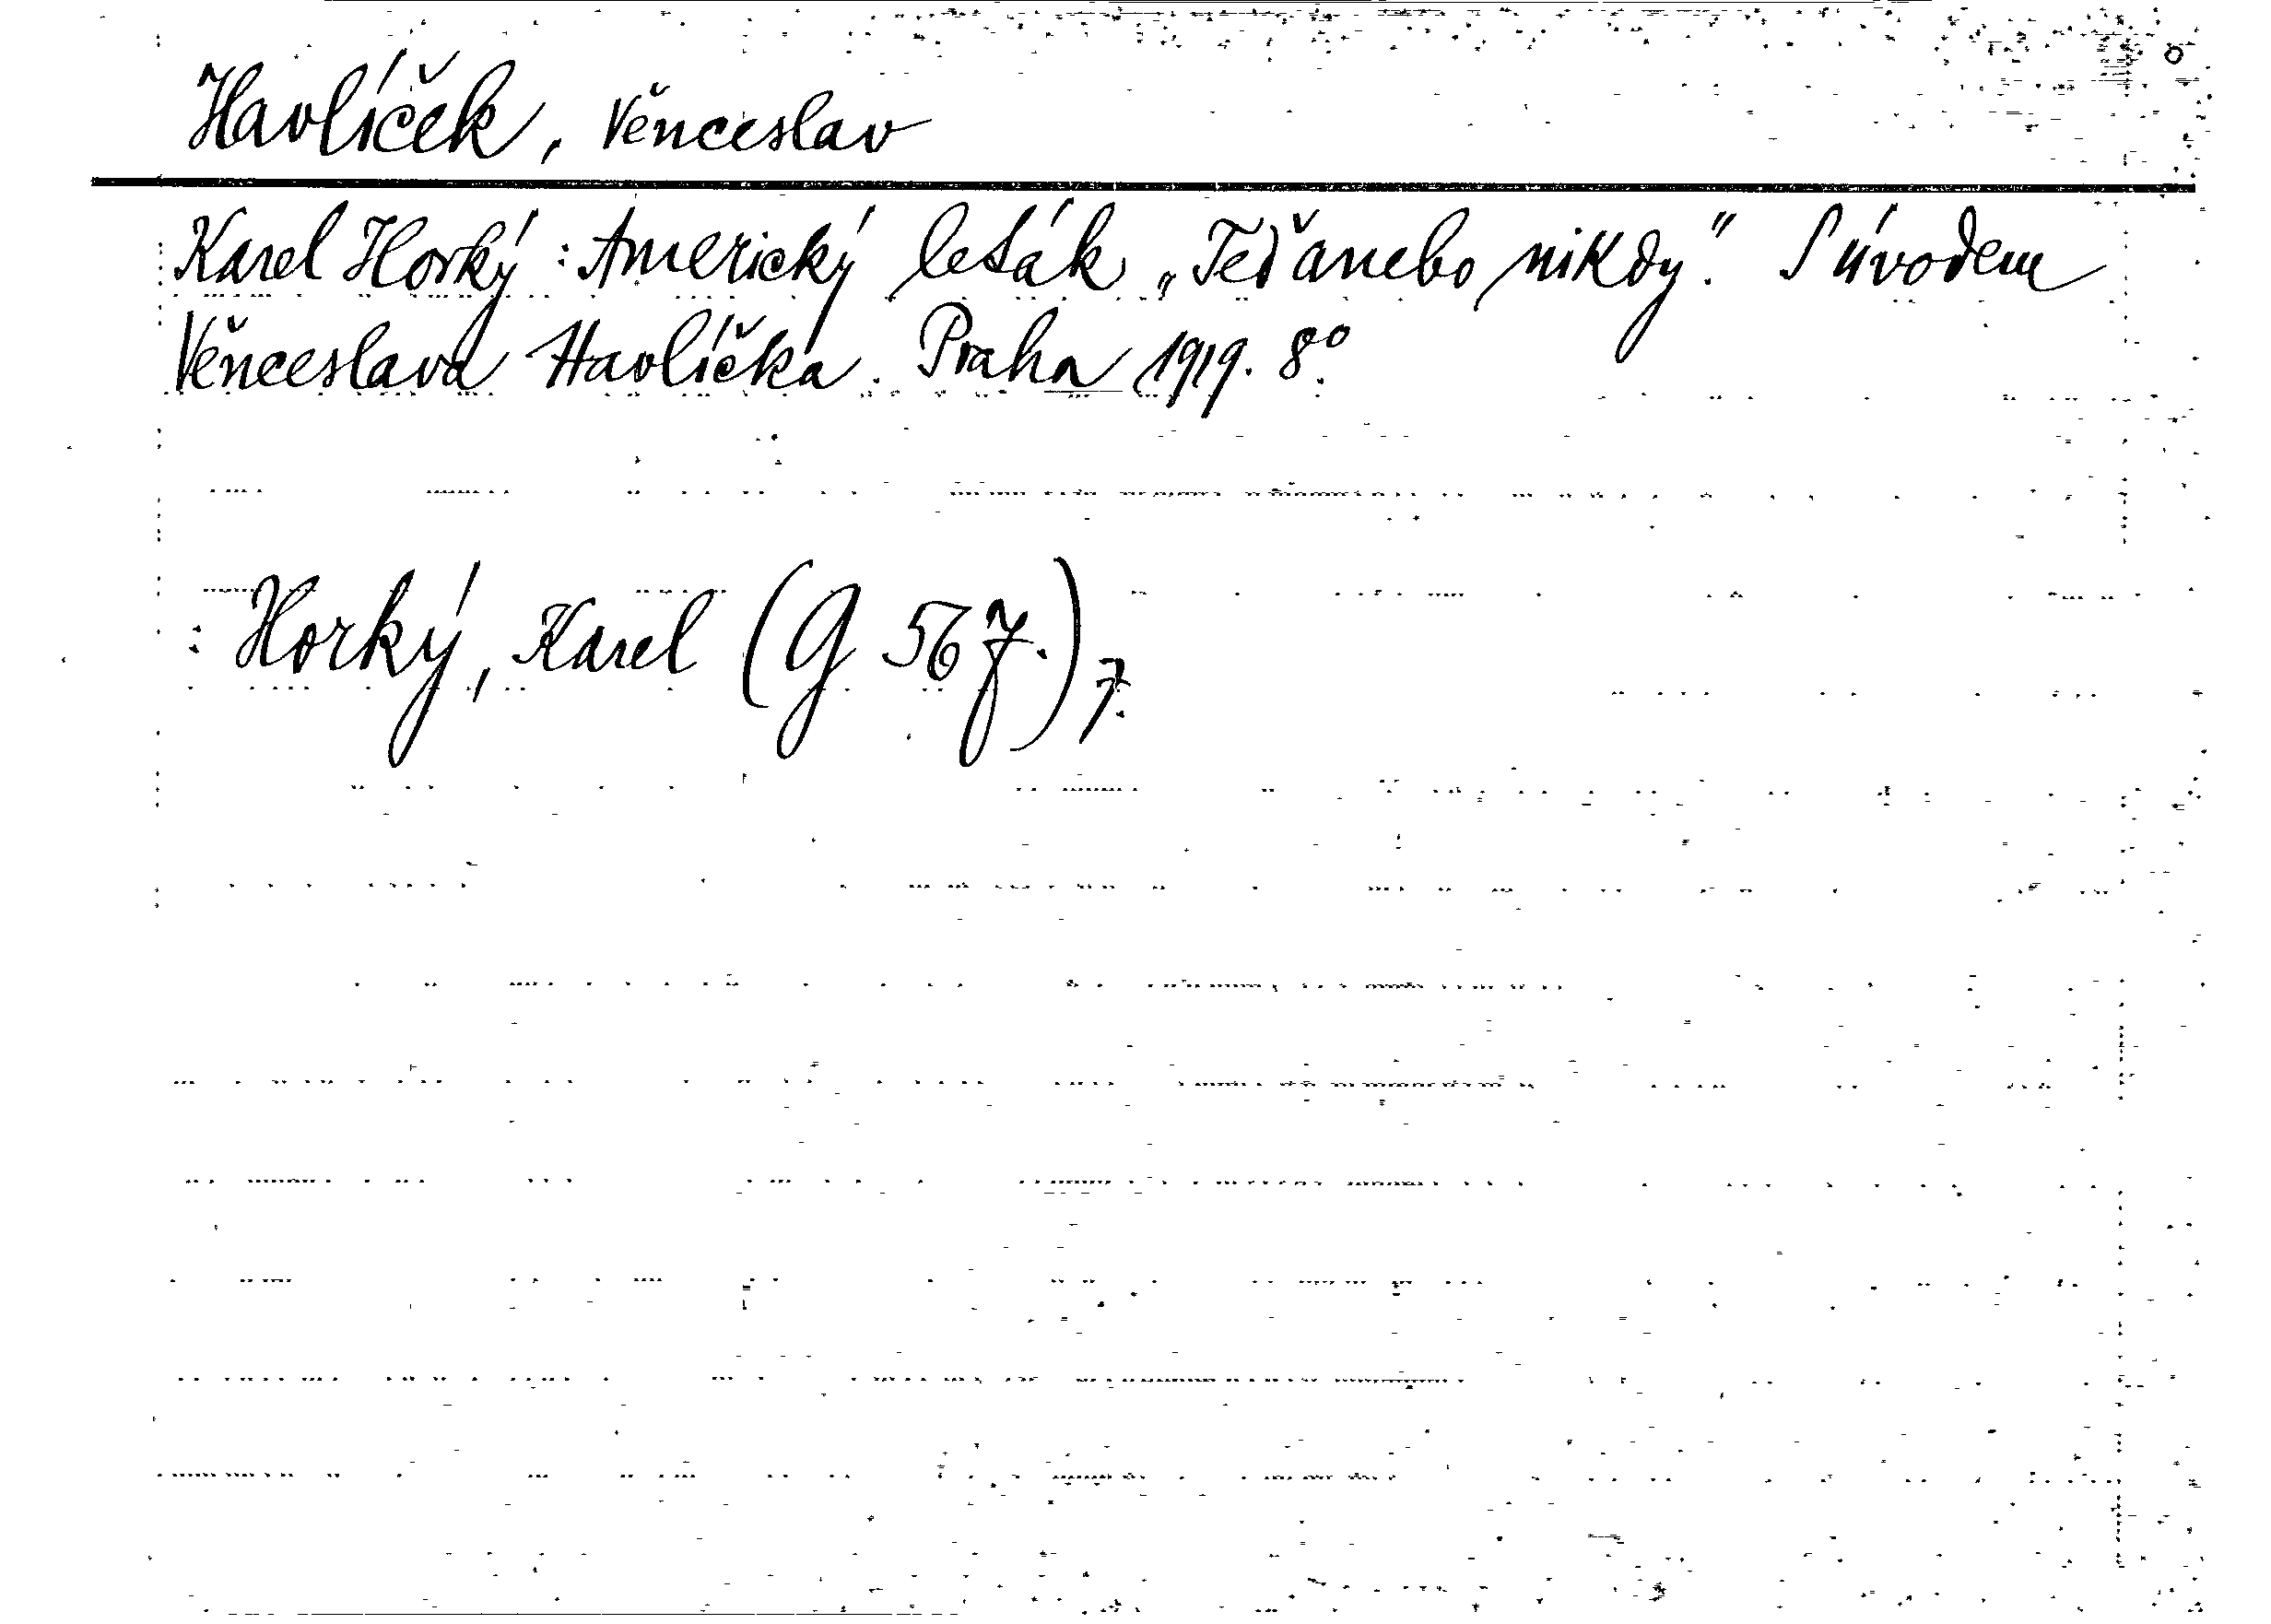 Havlíček, Věnceslav
Karel Horký: Americký leták „Teď anebo nikdy." S úvodem
Věnceslava Havlíčka. Praha 1919. 8°.
: Horký, Karel (G 567.)7.